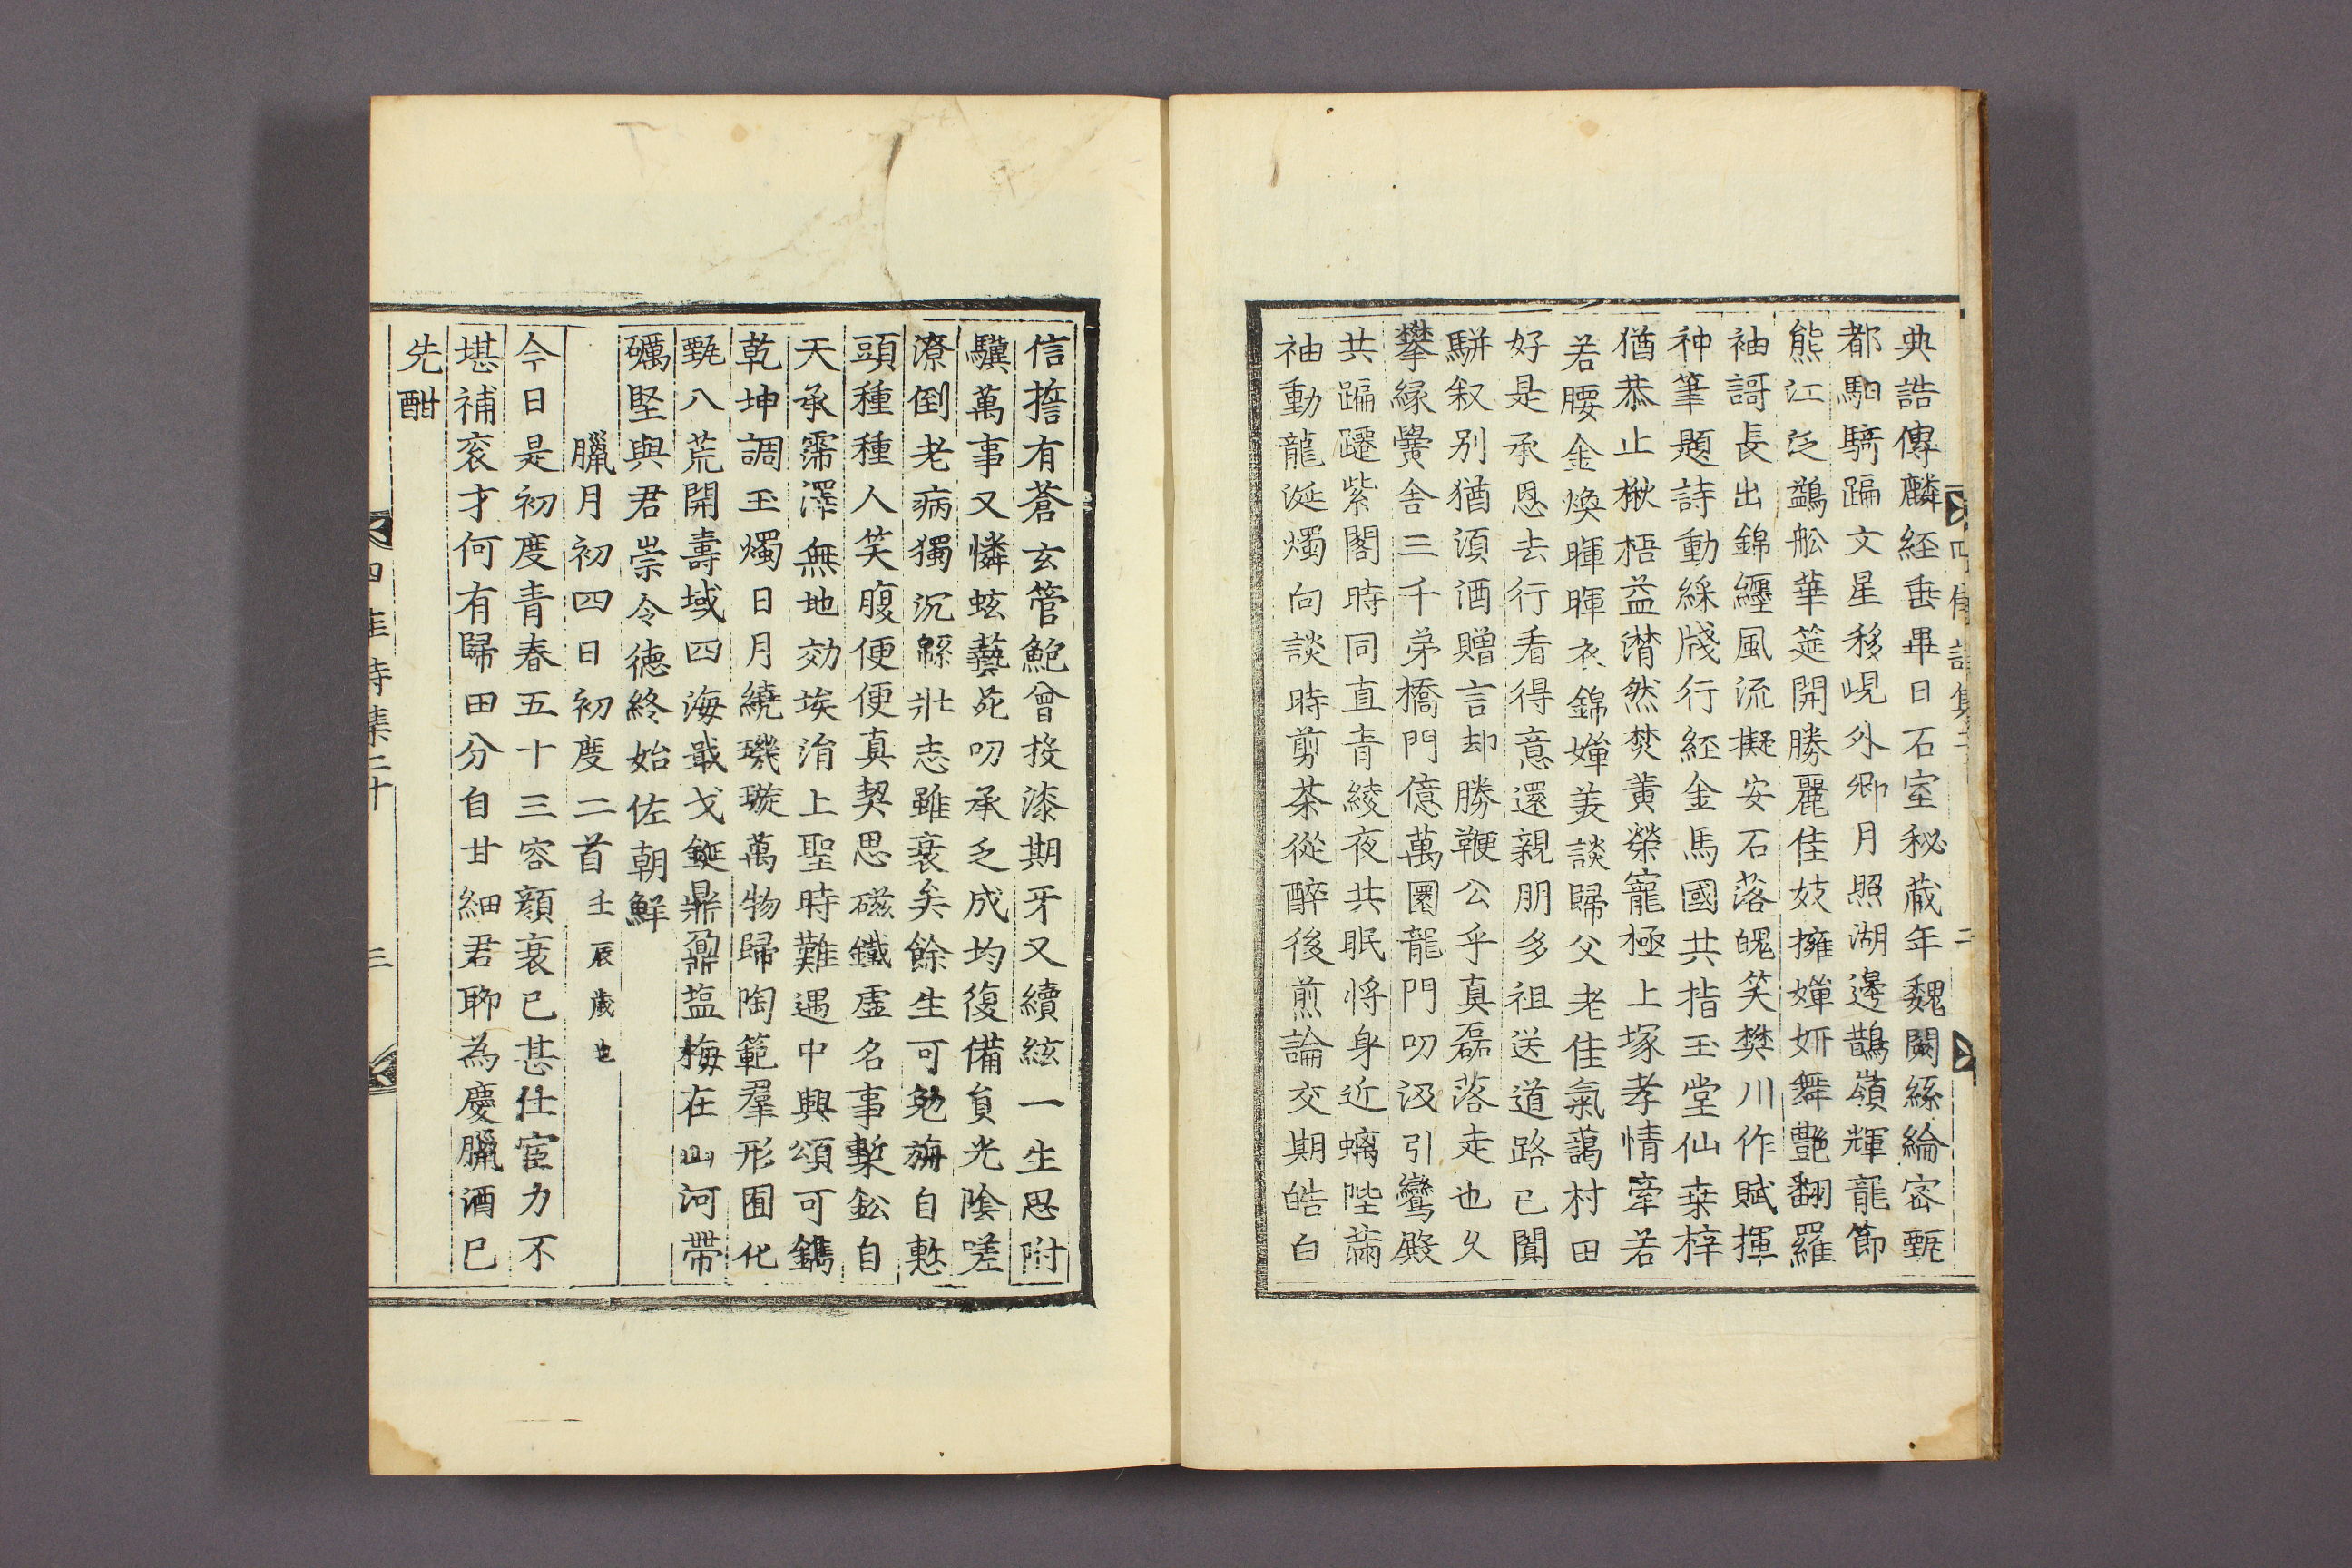 典誥傳麟經垂畢日石室秘蔵年魏闕絲綸密甄
都馹騎蹁文星移峴外卿月照湖邊鵲嶺輝龍節
熊江泛鷁舩華筵開勝麗佳妓擁嬋妍舞艶翻羅
袖謌長出錦纒風流擬安石落魄笑樊川作賦揮
神筆題詩動綵牋行經金馬國共指玉堂仙桒梓
猶恭止楸梧益潸然焚黃榮寵極上塚孝情牽若
若腰金煥暉暉衣錦嬋美談歸父老佳氣藹村田
好是承恩去行看得意還親朋多祖送道路已闐
騈叙別猶湏酒贈言却勝鞭公乎真磊落走也久
攀緣黌舍三千弟橋門億萬圜龍門叨汲引鸞殿
共蹁躚紫閣時同直青綾夜共眠将身近螭陛滿
袖動龍涎燭向談時剪茶從醉後煎論交期皓白
信擔有蒼玄管鮑曾投漆期牙又續絃一生思附
驥萬事又憐蚿藝苑叨承乏成均復備負光陰嗟
潦倒老病獨沉緜壯志雖衰矣餘生可勉旃自慙
頭種種人笑腹便便真契思磁鐵虛名事槧鈆自
天承霈澤無地効埃涓上聖時難遇中興頌可鐫
乾坤調玉燭日月繞璣璇萬物歸陶範羣形囿化
甄八荒開壽域四海戢戈鋋鼎鼐塩梅在山河帶
礪堅與君崇令德終始佐朝鮮
臘月初四日初度二首 壬辰歲也
今日是初度青春五十三容顔衰已甚仕宦力不
堪補衮才何有歸田分自甘細君聊為慶臘酒已
先酣
四佳詩集二十
三